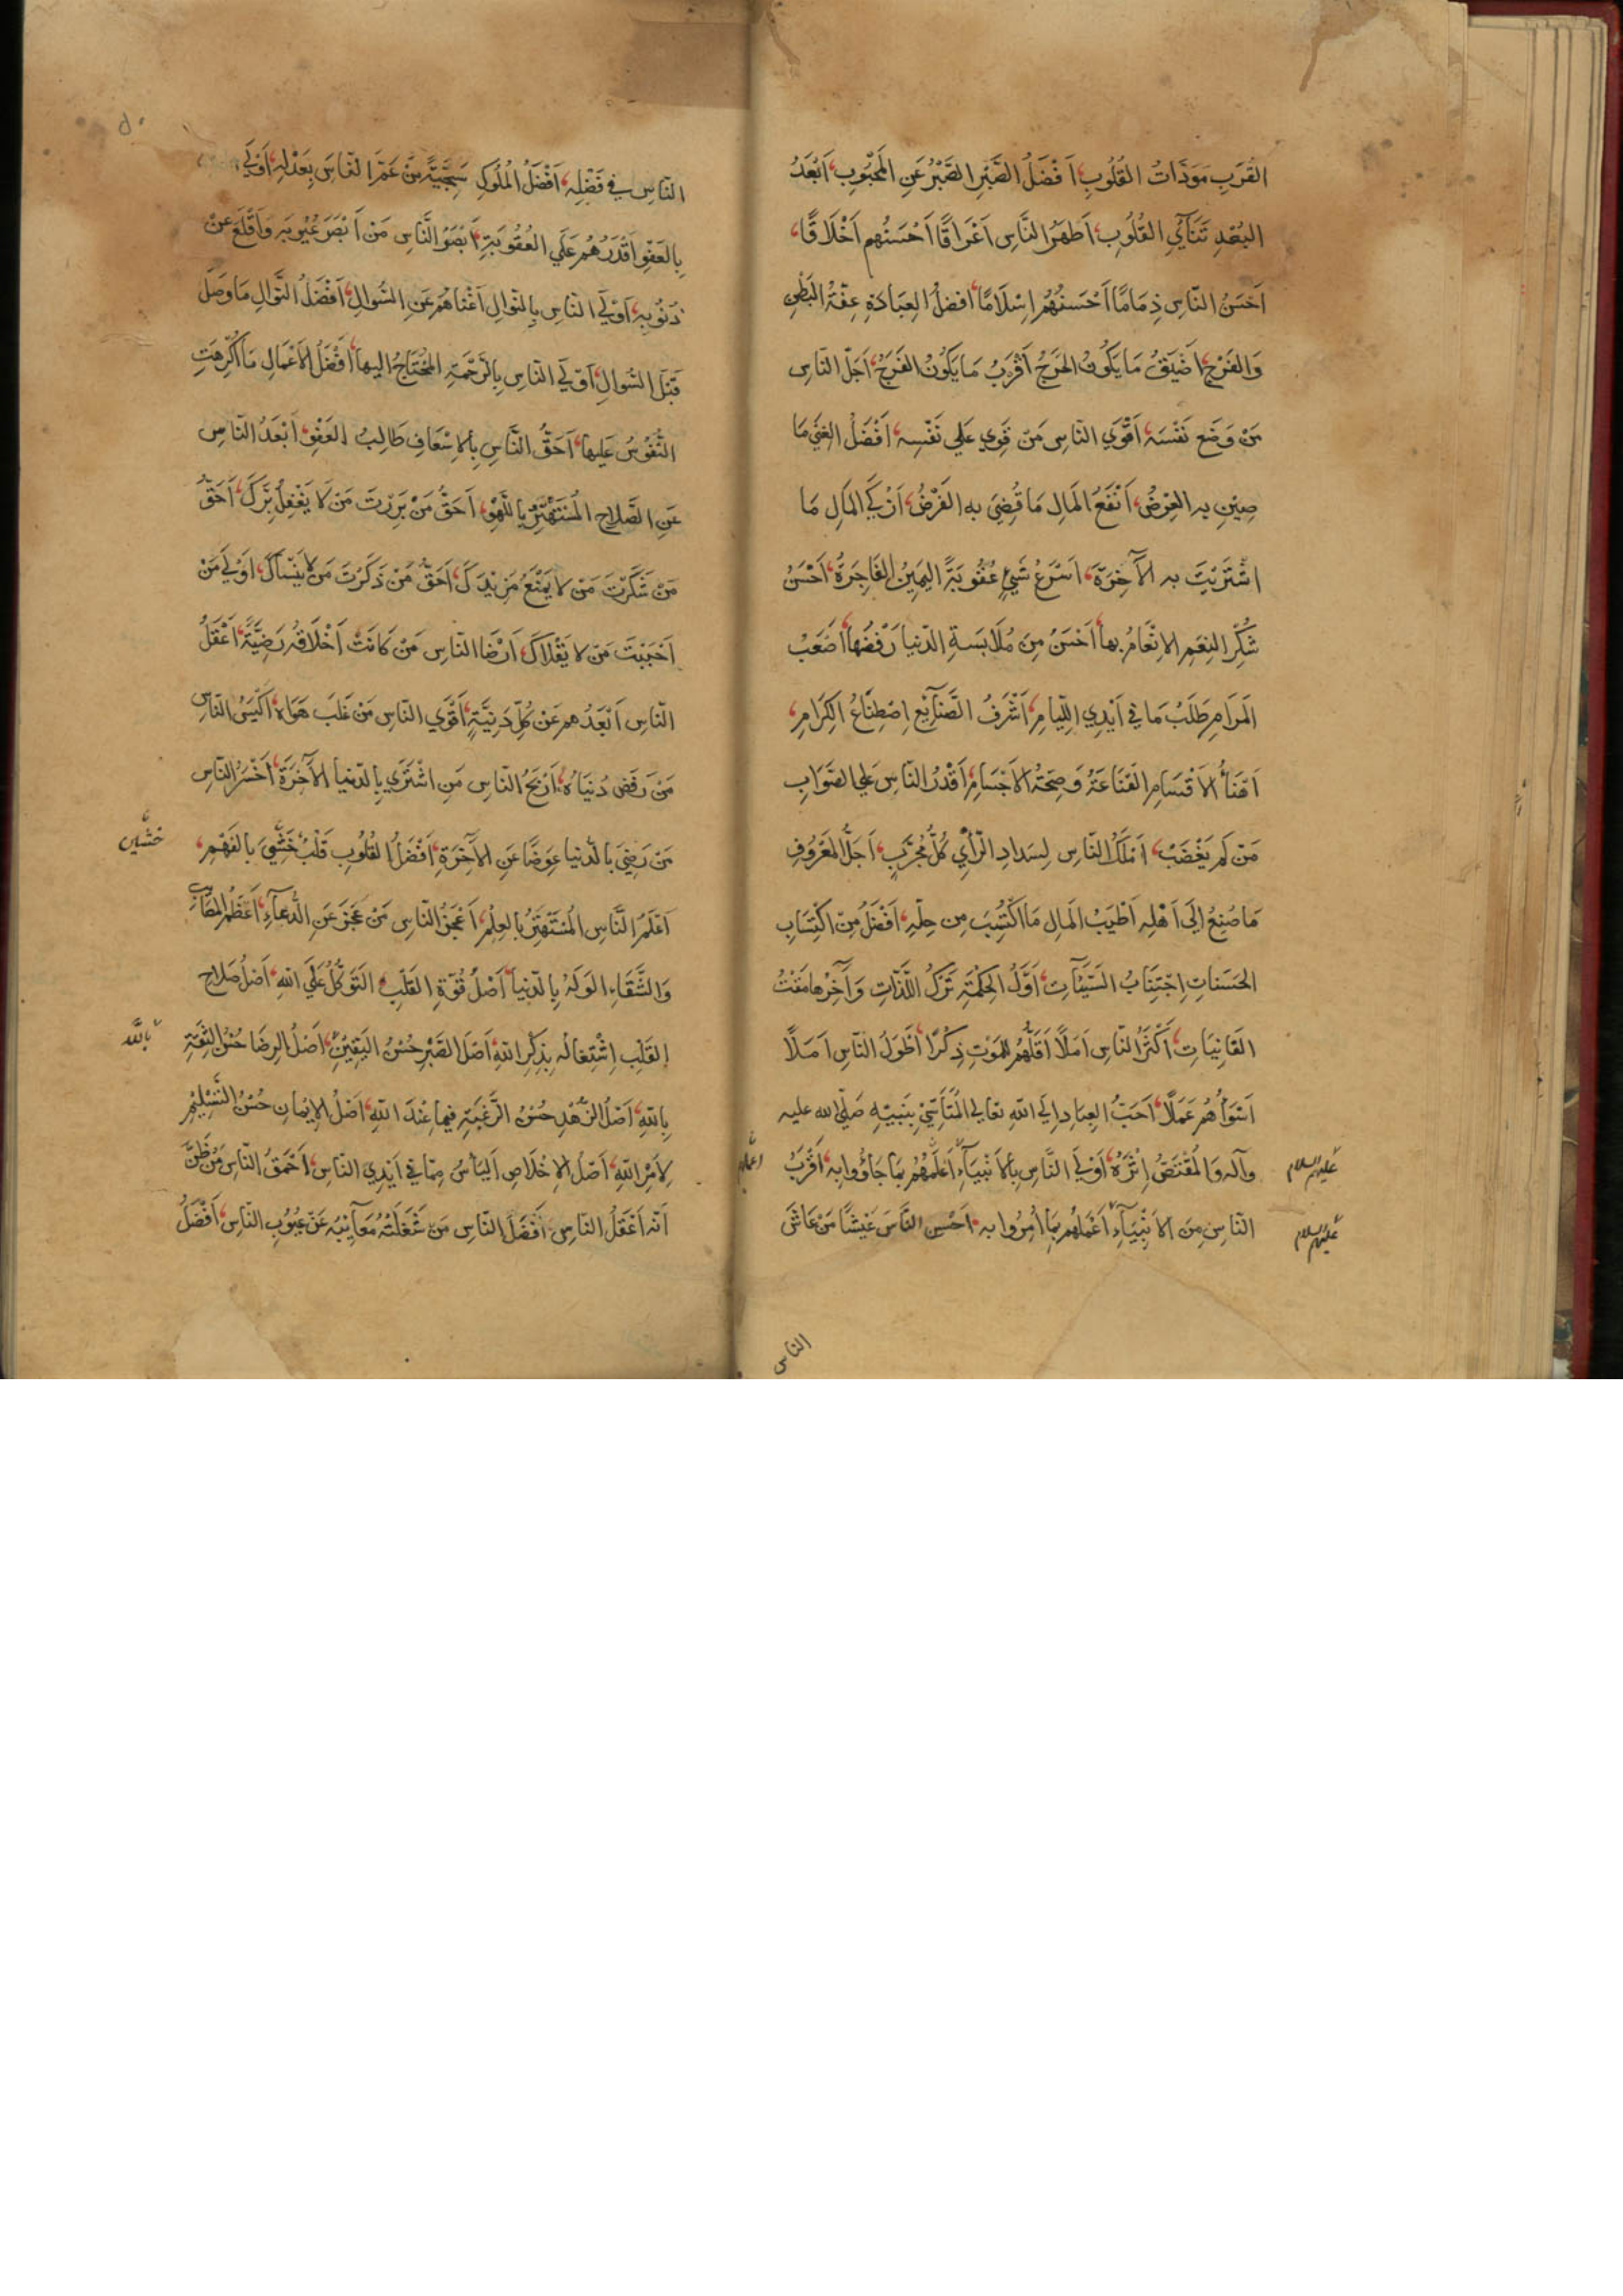 القُرَبِ مَوَدَّاتُ القُلُوبِ، اَفْضَلُ الصَّبْرِ الصَّبْرُ عَنِ المَحْبُوبِ، اَبْعَدُ
البُعْدِ تَنَآئِي القُلُوبِ، اَطهَرُ النَّاسِ اَعْرَاقًا اَحْسَنُهم اَخْلَاقًا،
اَحْسَنُ النّاسِ ذِمَامًا اَحْسَنُهُمْ اِسْلَامًا، افضلُ العِبَادَةِ عِفّةُ البَطْنِ
وَالفَرْجِ، اَضْيَقُ مَا يَكُونُ الحَرَجُ اَقْرَبُ مَا يَكُونُ الفَرَجُ، اَجَلُّ النّاسِ
مَنْ وَضَعَ نَفْسَهُ، اَقْوَي النّاسِ مَنْ قَوِيَ عَلي نَفْسِهِ، اَفْضَلُ الغِنَي مَا
صِيْنَ بِهِ العِرْضُ، اَنْفَعُ المَالِ مَا قُضِيَ بِهِ الفَرْضُ، اَزْكَي المَالِ مَا
اشْتَرَيْتَ بِهِ الآخِرَةَ، اَسْرَعُ شَيْءٍ عُقُوبَةً اليَمِيْنُ الفَاجِرَةُ، اَحْسَنُ
شُكْرِ النِعَمِ الاِنْعَامُ بها، اَحْسَنُ مِنْ مُلَابَسَةِ الدّنيا رَفْضُهَا، اَصْعَبُ
المَرَامِ طَلَبُ مَا في اَيْدِي اللِّئَامِ، اَشْرَفُ الصَّنَآئِعِ اصْطِنَاعُ الكِرَامِ،
اَهْنَأُ الاَقْسَامِ القَنَاعَةُ وَصِحَّةُ الاَجْسَامِ، اَقْدَرُ النَّاسِ عَلي الصَّوَابِ
مَنْ لَمْ يَغْضَبْ، اَمْلَكُ النَّاسِ لِسَدَادِ الرَّأْيِ كُلُّ مُجَرِّبٍ، اَجَلُّ المَعْرُوفِ
مَا صُنِعَ اِلَي اَهْلِهِ، اَطْيَبُ المَالِ مَا اكْتُسِبَ مِن حِلِّهِ، اَفْضَلُ مِنْ اكْتِسَابِ
الحَسَنَاتِ اِجْتِنَابُ السَّيِّئَآتِ، اَوَّلُ الحِكْمَةِ تَرْكُ اللَّذّاتِ وَآخِرُهَا مَقْتُ
الفَانِيَاتِ، اَكْثَرُ النّاسِ اَمَلاً اَقَلُّهُم لِلمَوْتِ ذِكْرًا، اَطْوَلُ النّاسِ اَمَلًا
اَسْوَأُهُمْ عَمَلًا، اَحَبُّ العِبَادِ اِلَي اللهِ تعالي المُتَأَسِّيْ بِنَبِيِّهِ صَلّي الله عليه
وآله وَالمُقْتَصُّ اِثْرَهُ، اَوْلَي النَّاسِ بِالاَنْبِيَآءِ اَعْلَمُهُمْ بِمَا جَاؤُوا بِه، اَقْرَبُ
عليهم السلام
النّاسِ مِنَ الاَنْبِيَآءِ اَعْمَلُهُمْ بِمَا اُمِرُوا بِه، اَحْسَن النَّاسِ عَيْشًا مَنْ عَاشَ
عليهم السلام
الناس
النّاسِ في فَضْلِهِ، اَفْضَلُ المُلُوكِ سَجِيَّةً مَنْ عَمَّ النّاسَ بِعَدْلِهِ، اَوْلَي
بِالعَفْوِ اَقْدَرُهُمْ عَلَي العُقُوبَةِ، اَبْصَرُ النَّاسِ مَنْ اَبْصَرَ عُيُوبَه وَاَقْلَعَ عَنْ
ذُنُوبِه، اَوْلَي النّاسِ بِالنّوَالِ اَغْنَاهُمْ عَنِ السُّوالِ، اَفْضَلُ النَّوالِ مَا وَصَلَ
قَبْلَ السُّوالِ، اَوْلَي النّاسِ بِالرَّحْمَةِ المُحْتَاجُ اليها، اَفْضَلُ الاَعْمَالِ مَا اُكْرِهَتِ
النُّفُوسُ عَلَيها، اَحَقُّ النَّاسِ بِالاِسْعَافِ طَالِبُ العَفْوِ، اَبْعَدُ النّاسِ
عَنِ الصَّلَاحِ المُسْتَهْتِرُ بِاللَّهْوِ، اَحَقُّ مَنْ بَرَرْتَ مَنْ لَا يَغْفِلُ بِرَّكَ، اَحَقُّ
مَنْ شَكَرْتَ مَنْ لا يَمْنَعُ مَزِيْدَكَ، اَحَقُّ مَنْ ذَكَرْتَ مَنْ لا يَنْسَاكَ، اَوْلَي مَنْ
اَحْبَبْتَ مَنْ لا يَقْلَاكَ، اَرْضَا النّاسِ مَنْ كَانَتْ اَخْلَاقُه رَضِيَّةً، اَعْقَلُ
النّاسِ اَبْعَدُهم عَنْ كُلِّ دَنِيَّةٍ، اَقْوَي النّاسِ مَنْ غَلَبَ هَوَاهُ، اَكْيَسُ النّاسِ
مَنْ رَفَضَ دُنْيَاهُ، اَرْبَحُ النّاسِ مَنِ اشْتَرَي بِالدّنيا الآخِرَةَ، اَخْسَرُ النّاسِ
مَنْ رَضِيَ بِالدّنيا عِوَضًا عَنِ الآخِرَةِ، اَفْضَلُ القُلُوبِ قَلْبٌ حُشِيَ بِالفَهْمِ،
اَعْلَمُ النَّاسِ المُسْتَهْتِرُ بِالعِلْمِ، اَعْجَزُ النّاسِ مَنْ عَجَزَ عَنِ الدُّعآءِ، اَعْظَمُ المَصَائِبِ
وَالشَّقَاءِ الوَلَهُ بِالدّنيا، اَصْلُ قُوَّةِ القَلْبِ التَوَكُّلُ عَلَي اللهِ، اَصْلُ صَلَاحِ
القَلْبِ اِشْتِغَالُه بِذِكْرِ اللهِ، اَصْلُ الصَّبْرِ حُسْنُ اليَقِيْنِ، اَصْلُ الرِضَا حُسْنُ الثِقَةِ
بالله
بِاللهِ، اَصْلُ الزُّهْدِ حُسْنُ الرَّغْبَةِ فِيْمَا عِنْدَ اللهِ، اَصْلُ الاِيْمَانِ حُسْنُ التَّسْلِيْمِ
لِاَمْرِ اللهِ، اَصْلُ الاِخْلَاصِ اليَأسُ مِمّا في اَيْدِي النّاسِ، اَحْمَقُ النّاسِ مَنْ ظَنَّ
اَنّه اَعْقَلُ النّاسِ، اَفْضَلُ النّاسِ مَنْ شَغَلَتْهُ مَعَآئِبُه عَنْ عُيُوبِ النّاسِ، اَفْضَلُ